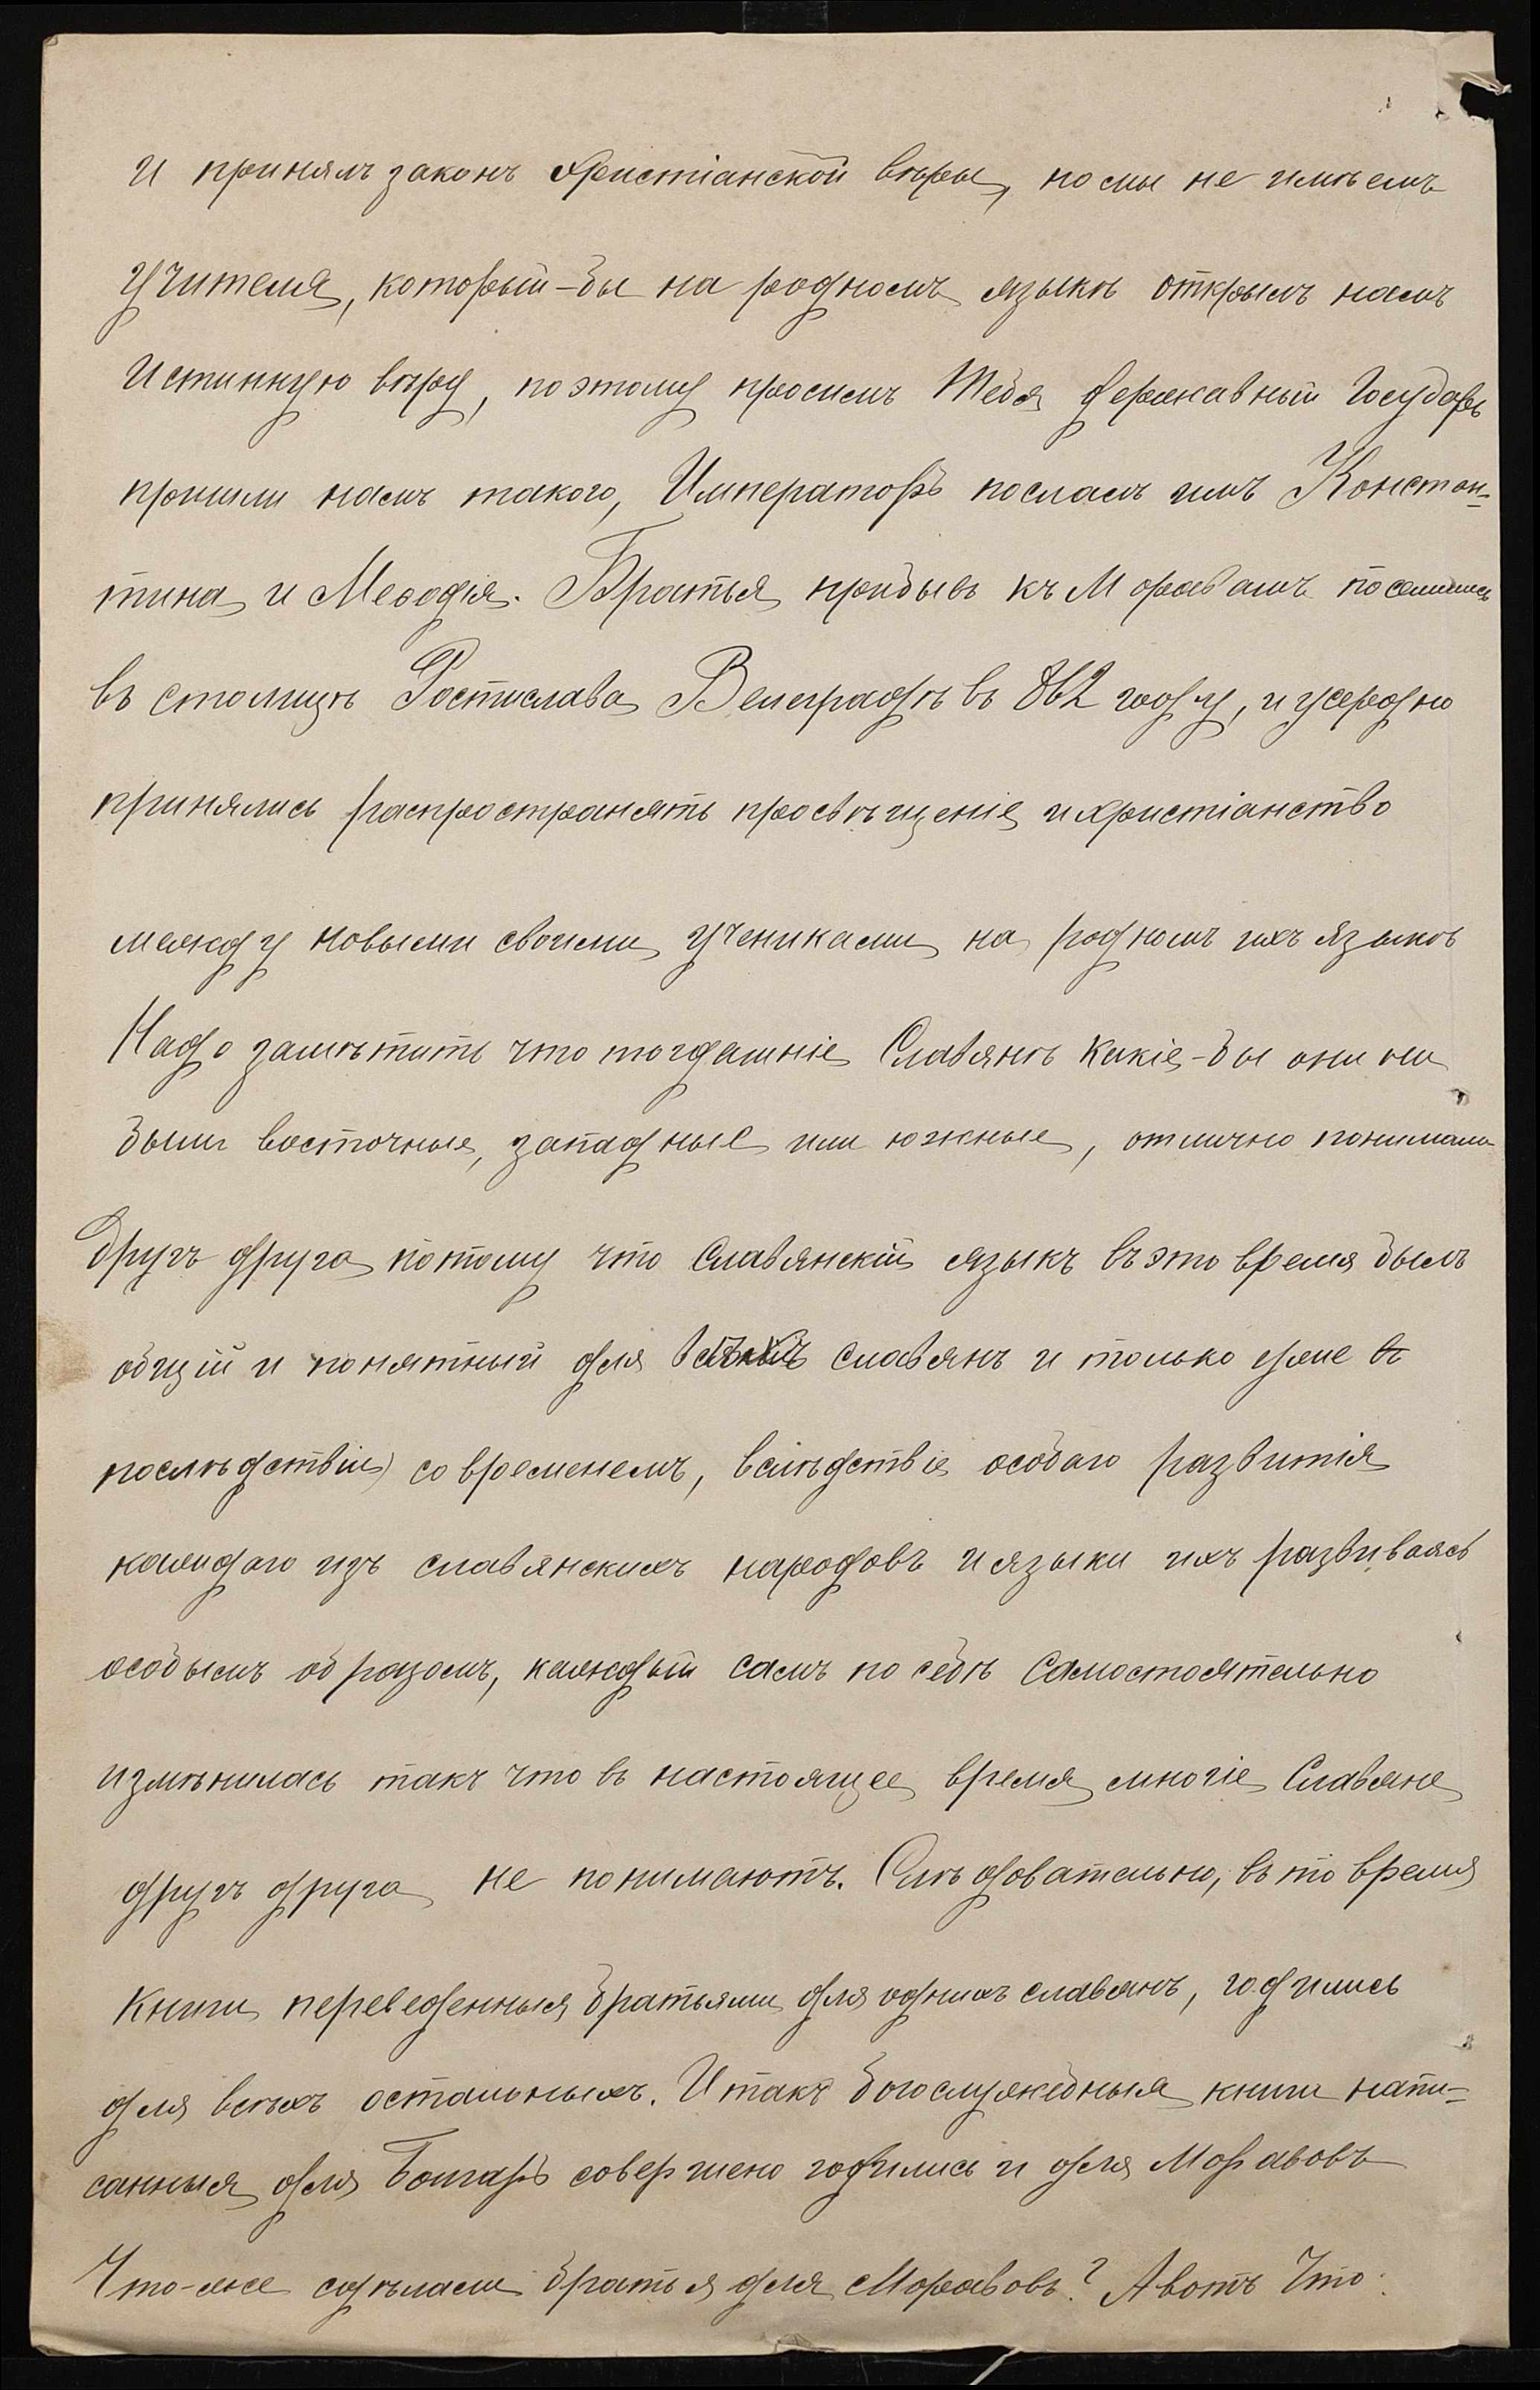 и принялъ законъ Христіанской вѣры, но мы не имѣемъ
учителя, который-бы на родномъ языкѣ открылъ намъ
Истинную вѣру, поэтому просимъ Тебя державный Государь
пришли намъ такого, Императоръ послалъ имъ Констан-
тина и Меѳодія. Братья прибывъ къ Моравамъ поселились
въ столицѣ Ростислава Велеградѣ въ 862 году, и усердно
принялись распространять просвѣщеніе и христіанство
между новыми своими учениками на родномъ ихъ языкѣ
Надо замѣтить что тогдашніе Славянѣ какіе-бы они ни
были восточные, западные или южные, отлично понимали
другъ друга потому что Славянскій языкъ въ это время былъ
общій и понятный для всѣхъ славянъ и только уже въ
послѣдствіи со временемъ, вслѣдствіе особаго развитія
каждаго изъ славянскихъ народовъ и языки ихъ развиваясь
особымъ образомъ, каждый самъ по себѣ самостоятельно
измѣнилась такъ что въ настоящее время многіе Славяне
другъ друга не понимаютъ. Слѣдовательно, въ то время
книги переведенныя братьями для однихъ славянъ, годились
для всѣхъ остальныхъ. Итакъ богослужебныя книги напи-
санныя для Болгаръ совершено годились и для Моравовъ
Что-же сдѣлали братья для Моравовъ? А вотъ что: